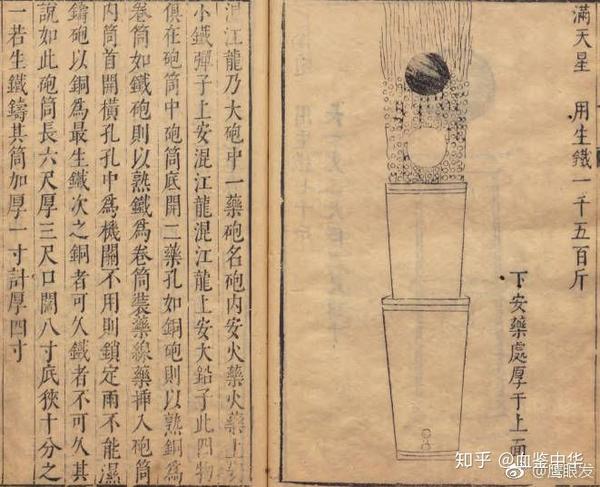 滿天星 用生鐵一千五百斤
下安藥處厚于上面
混江龍乃大砲中一藥砲名砲内安火藥火藥上
小鐵彈子上安混江龍混江龍上安大鉛子此四物
俱在砲筒中砲筒底開二藥孔如銅砲則以熟銅爲
卷筒如鐵砲則以熟鐵爲卷筒裝藥線藥挿入砲筒
内筒首開橫孔孔中爲機關不用則鎖定雨不能濕
鑄砲以銅爲最生鐵次之銅者可久鐵者不可久其
說如此砲筒長六尺厚三尺口闊八寸底狹十分之
一若生鐵鑄其筒加厚一寸計厚四寸
知乎 @血鉴中华
@鹰眼发